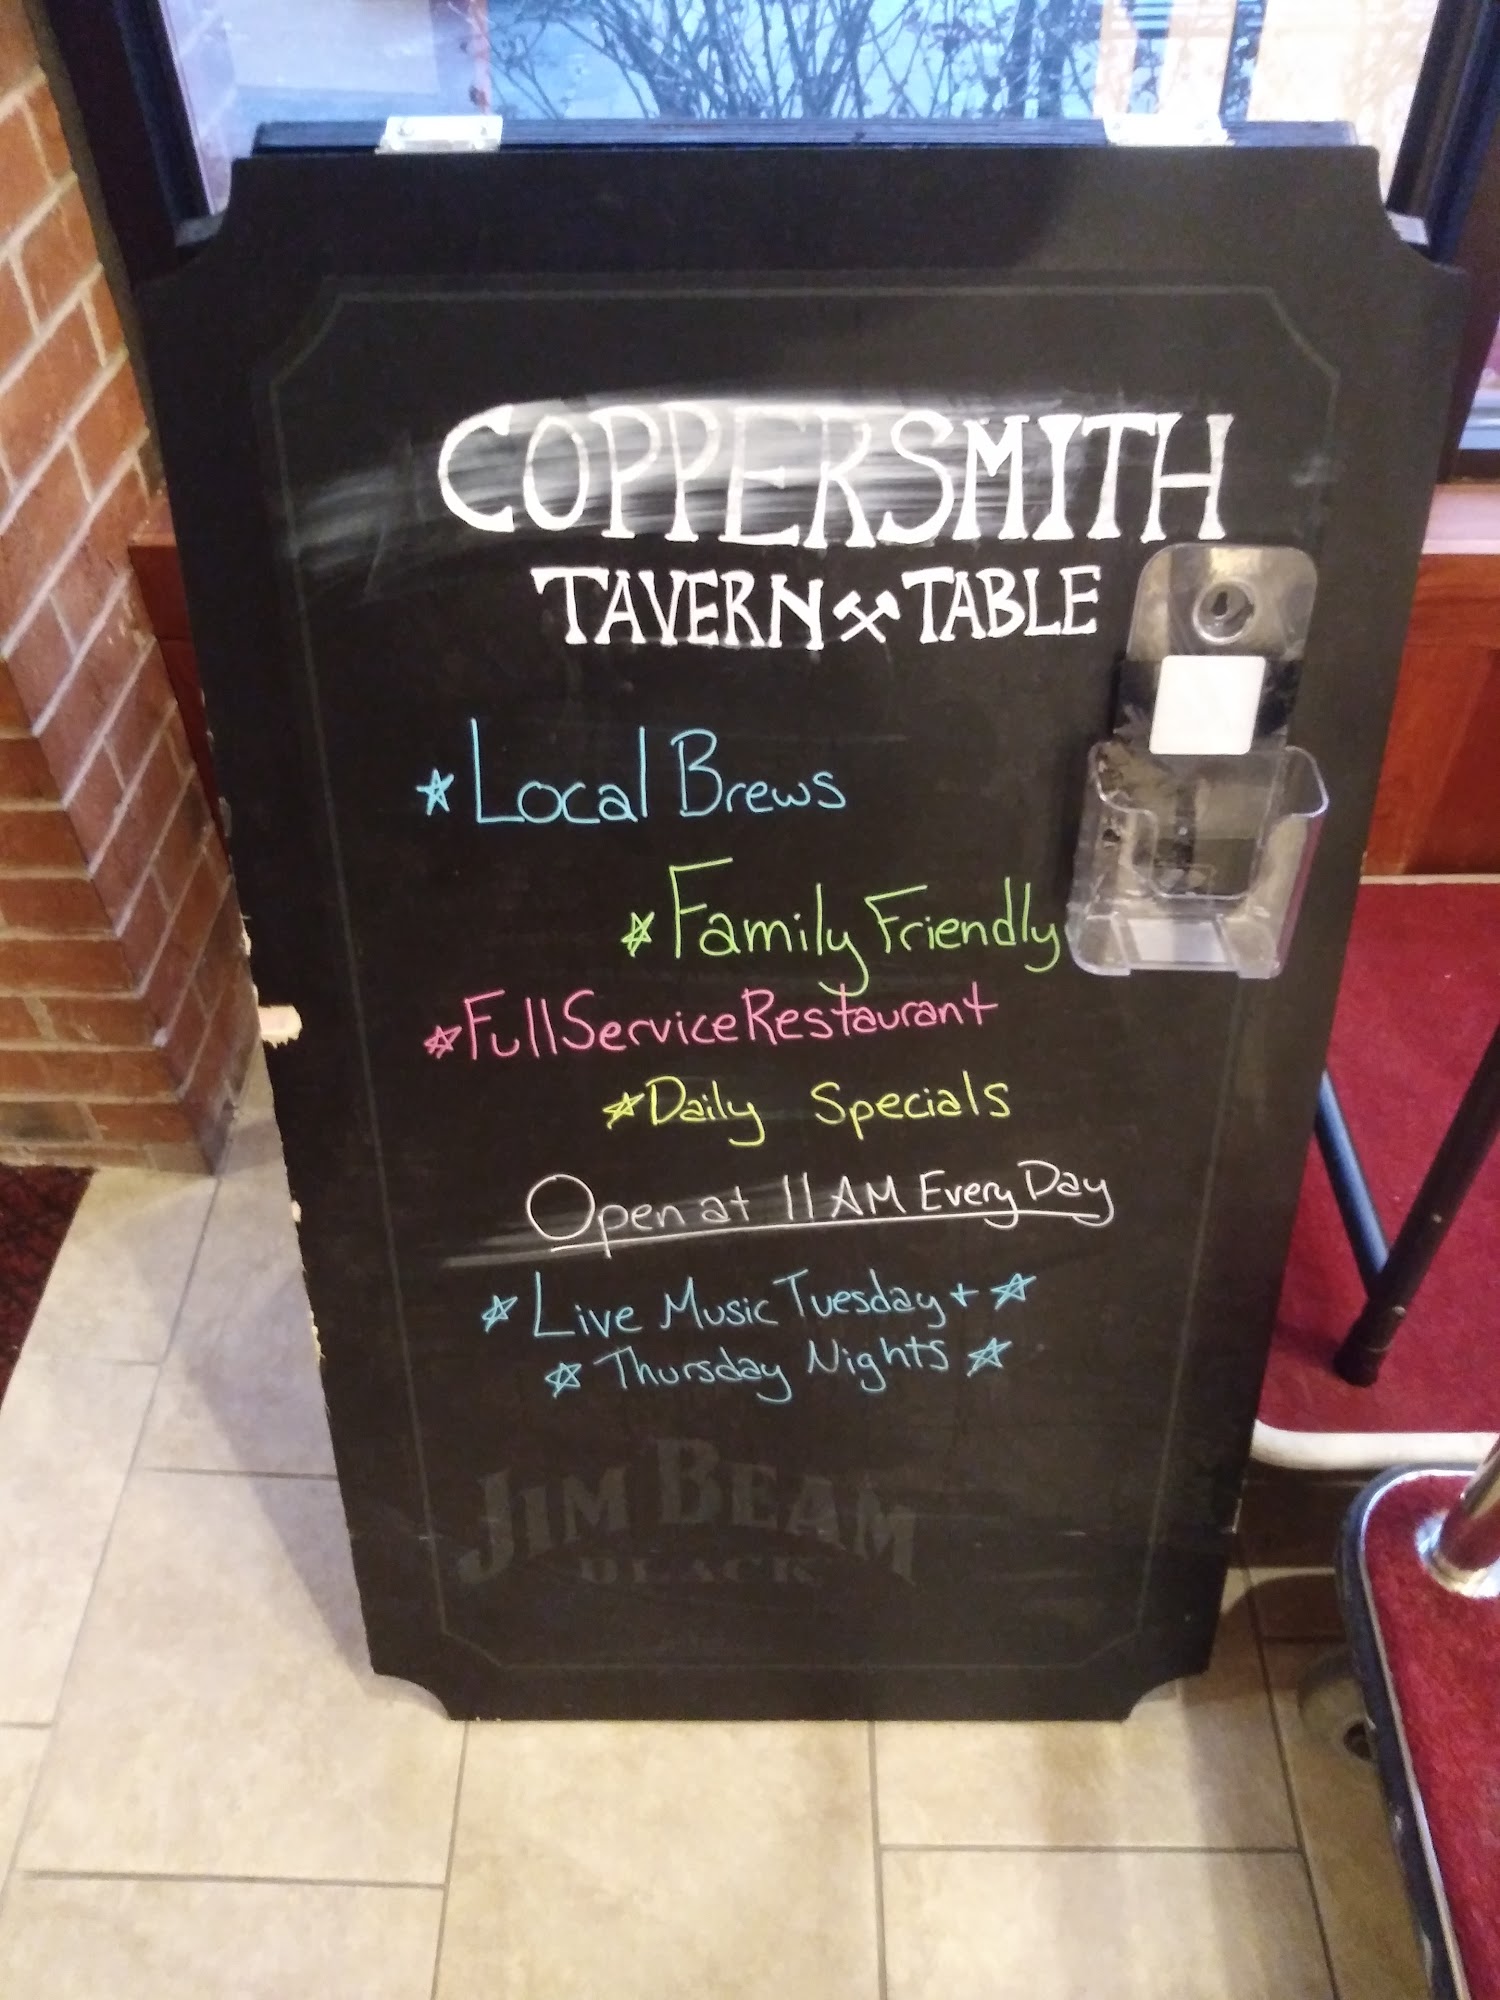 COPPERSMITH
TAVERN TABLE
Local Brews
Family Friendly
Full Service Restaurant
Daily Specials
Open at 11 AM Every Day
Live Music Tuesday +
Thursday Nights
JIM BEAM
BLACK